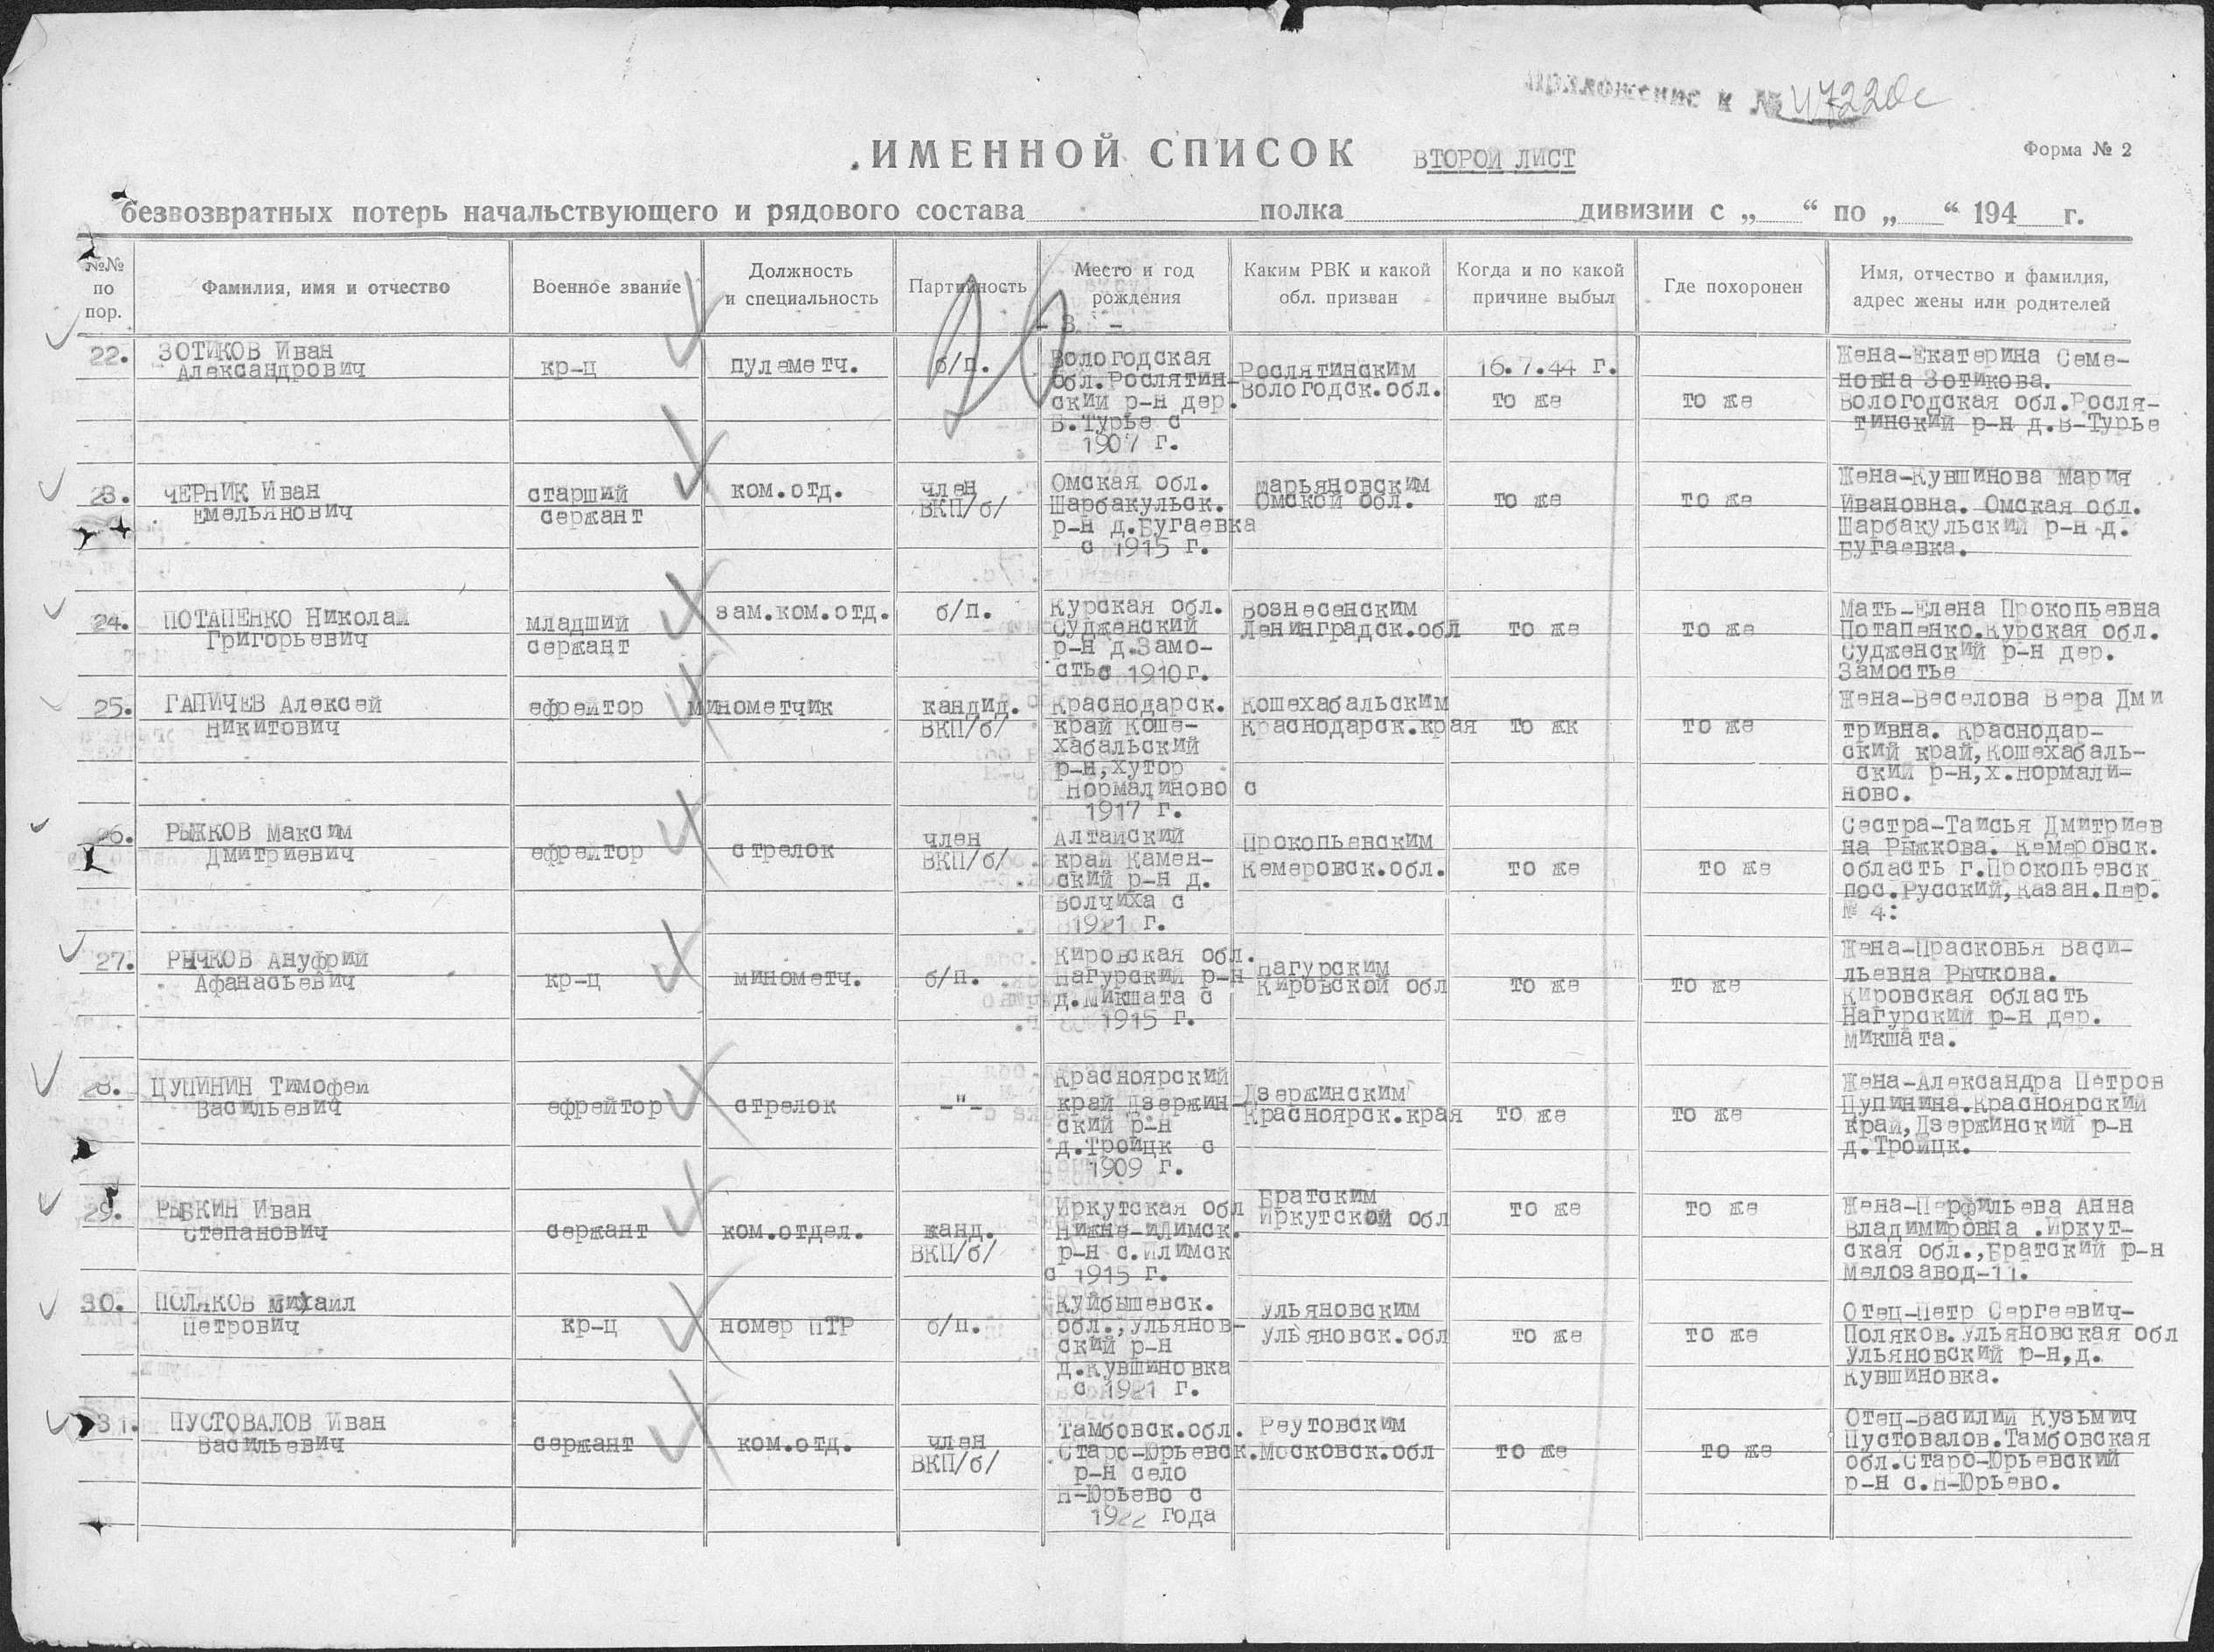 Приложение к № 47220с
ИМЕННОЙ СПИСОК ВТОРОЙ ЛИСТ
Форма № 2
безвозвратных потерь начальствующего и рядового состава полка дивизии с „ “ по „ “ 194 г.
№№ по пор.
Фамилия, имя и отчество
Военное звание
Должность и специальность
Партийность
Место и год рождения
Каким РВК и какой обл. призван
Когда и по какой причине выбыл
Где похоронен
Имя, отчество и фамилия, адрес жены или родителей
- 3 -
22.
ЗОТИКОВ Иван
Александрович
кр-ц
пулеметч.
б/п.
Вологодская
обл.Рослятин-
ский р-н дер.
В.Турье с
1907 г.
Рослятинским
Вологодск.обл.
16.7.44 г.
то же
то же
Жена-Екатерина Семе-
новна Зотикова.
Вологодская обл.Росля-
тинский р-н д.В-Турье
23.
ЧЕРНИК Иван
Емельянович
старший
сержант
ком.отд.
член
ВКП/б/
Омская обл.
Шарбакульск.
р-н д.Бугаевка
с 1915 г.
Марьяновским
Омской обл.
то же
то же
Жена-Кувшинова Мария
Ивановна. Омская обл.
Шарбакульский р-н д.
Бугаевка.
24.
ПОТАПЕНКО Николай
Григорьевич
младший
сержант
зам.ком.отд.
б/п.
Курская обл.
Судженский
р-н д.Замо-
стьс 1910г.
Вознесенским
Ленинградск.обл
то же
то же
Мать-Елена Прокопьевна
Потапенко.Курская обл.
Судженский р-н дер.
Замостье
25.
ГАПИЧЕВ Алексей
Никитович
ефрейтор
минометчик
кандид.
ВКП/б/
Краснодарск.
край Коше-
хабальский
р-н,хутор
Нормалиново с
1917 г.
Кошехабальским
Краснодарск.края
то жк
то же
Жена-Веселова Вера Дми
тривна. Краснодар-
ский край,Кошехабаль-
ский р-н,х.Нормали-
ново.
26.
РЫЖКОВ Максим
Дмитриевич
ефрейтор
стрелок
член
ВКП/б/
Алтайский
край Камен-
ский р-н д.
Волчиха с
1921 г.
Прокопьевским
Кемеровск.обл.
то же
то же
Сестра-Таисья Дмитриев
на Рыжкова. Кемеровск.
область г.Прокопьевск
пос.Русский,Казан.пер.
№ 4:
27.
РЫЧКОВ Ануфрий
Афанасьевич
кр-ц
минометч.
б/п.
Кировская обл.
Нагурский р-н
д.Микшата с
1915 г.
Нагурским
Кировской обл
то же
то же
Жена-Прасковья Васи-
льевна Рычкова.
Кировская область
Нагурский р-н дер.
Микшата.
28.
ЦУПИНИН Тимофей
Васильевич
ефрейтор
стрелок
-"-
Красноярский
край Дзержин-
ский р-н
д.Тройцк с
1909 г.
Дзержинским
Красноярск.края
то же
то же
Жена-Александра Петров
Цупинина.Красноярский
край,Дзержинский р-н
д.Тройцк.
29.
РЫБКИН Иван
Степанович
сержант
ком.отдел.
канд.
ВКП/б/
Иркутская обл
Нижне-Илимск.
р-н с.Илимск
с 1915 г.
Братским
Иркутской обл
то же
то же
Жена-Перфильева Анна
Владимировна .Иркут-
ская обл.,Братский р-н
Мелозавод-11.
30.
ПОЛЯКОВ Михаил
Петрович
кр-ц
номер ПТР
б/п.
Куйбышевск.
обл.,Ульянов-
ский р-н
д.Кувшиновка
с 1921 г.
Ульяновским
Ульяновск.обл
то же
то же
Отец-Петр Сергеевич-
Поляков.Ульяновская обл
Ульяновский р-н,д.
Кувшиновка.
31.
ПУСТОВАЛОВ Иван
Васильевич
сержант
ком.отд.
член
ВКП/б/
Тамбовск.обл.
Старо-Юрьевск.
р-н село
Н-Юрьево с
1922 года
Реутовским
Московск.обл
то же
то же
Отец-Василий Кузьмич
Пустовалов.Тамбовская
обл.Старо-Юрьевский
р-н с.Н-Юрьево.